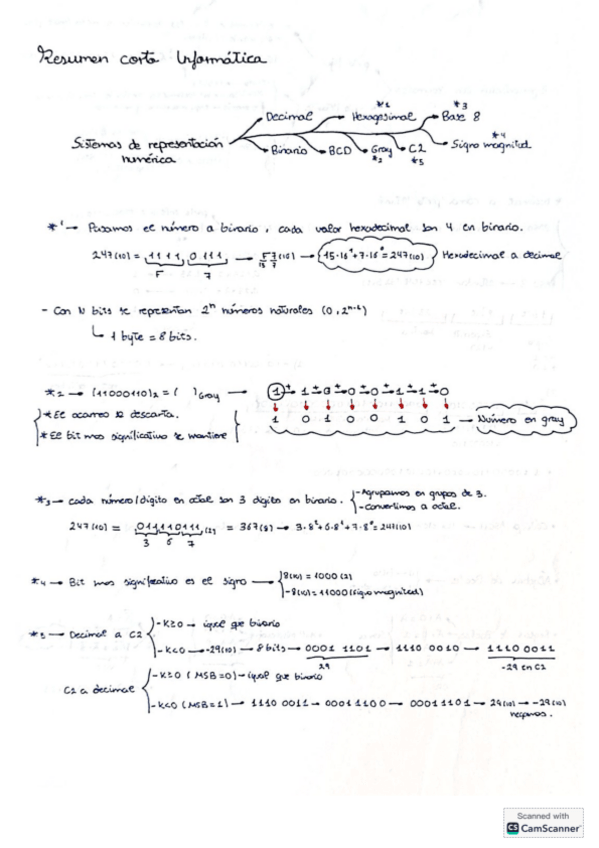 Resumen corto Informática
Decimal Hexagesimal *1 Base 8 *3
Sistemas de representación numérica
Binario BCD Gray *2 C2 *5 Signo magnitud *4
*1 → Pasamos el número a binario, cada valor hexadecimal son 4 en binario.
247(10) = 1111, 0111 → F7(16) → 15·16¹+7·16⁰=247(10) Hexadecimal a decimal
F 7 15 7
- Con N bits se representan 2ⁿ números naturales (0, 2ⁿ⁻¹)
↳ 1 byte = 8 bits.
*2 → (11000110)2 = ( )Gray → 1 + 1 + 0 + 0 + 0 + 1 + 1 + 0
*El acarreo se descarta. 1 0 1 0 0 1 0 1 → Número en gray
*El bit mas significativo se mantiene
*3 → cada número/dígito en octal son 3 dígito en binario. - Agrupamos en grupos de 3.
- Convertimos a octal.
247(10) = 011110111(2) = 367(8) → 3·8²+6·8¹+7·8⁰=247(10)
3 6 7
*4 → Bit mas significativo es el signo → 8(10) = 1000(2)
-8(10) = 11000 (signo magnitud)
*5 → Decimal a C2 - K≥0 → igual que binario
- K<0 → -29(10) → 8 bits → 0001 1101 → 1110 0010 → 1110 0011
29 -29 en C2
C2 a decimal - K≥0 (MSB=0) → igual que binario
- K<0 (MSB=1) → 1110 0011 → 0001 1100 → 0001 1101 → 29(10) → -29(10)
negamos.
Scanned with
CS CamScanner